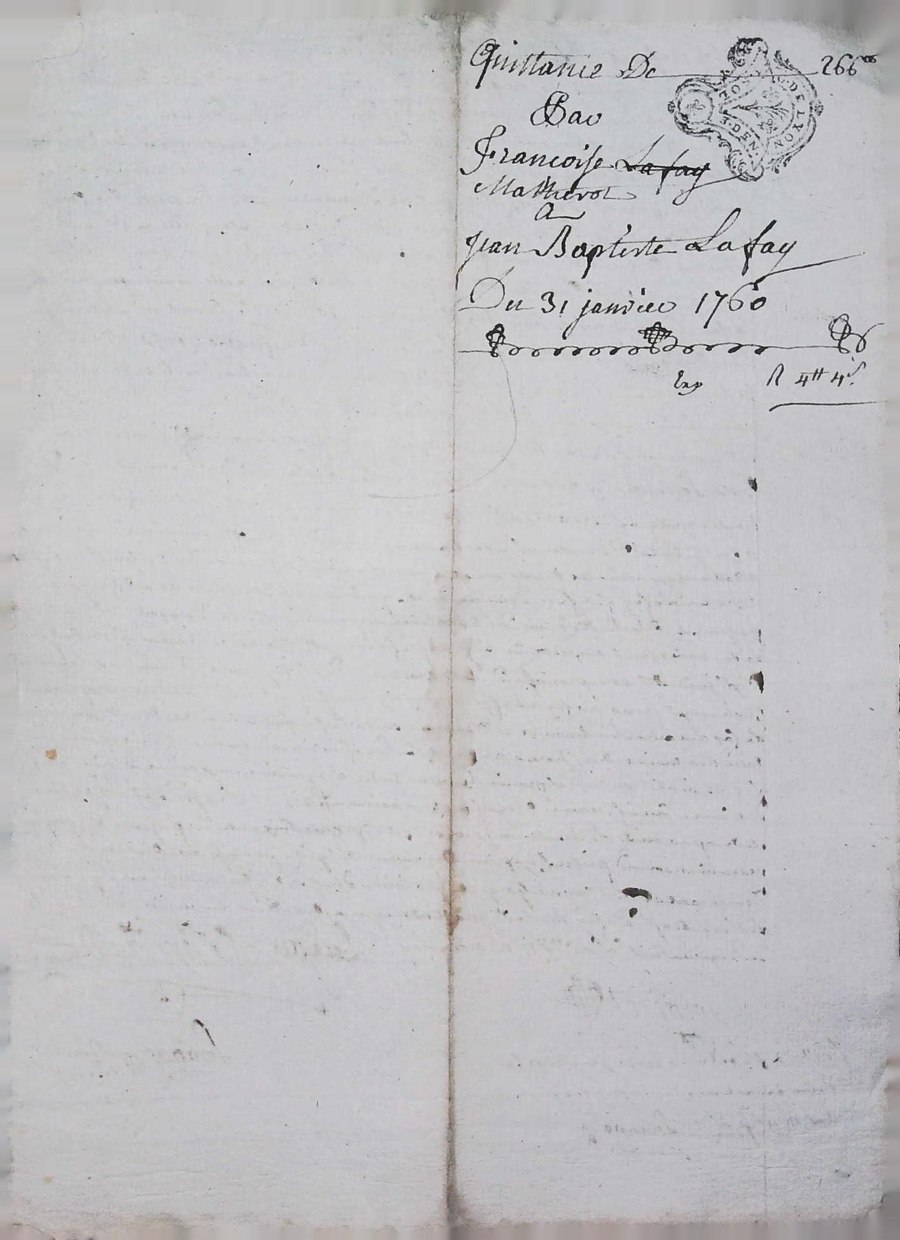 Quittance De 266
Par
Francoise Lafay
Matherot
a
Jean Baptiste Lafay
Du 31 janvier 1760
Exp R 4tt 4s
DE LYON
DEN